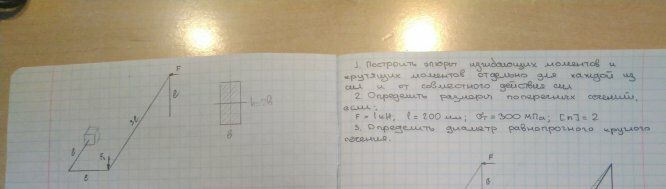 1. Построить эпюры изгибающих моментов и
крутящих моментов отдельно для каждой из
сил и от совместного действия сил
2. Определить размеры поперечных сечений,
если:
F = 1 кН, l = 200 мм; σт = 300 МПа; [n] = 2
3. Определить диаметр равнопрочного круглого
сечения.
F
l
3l
h=2b
b
l
F
l
F
l